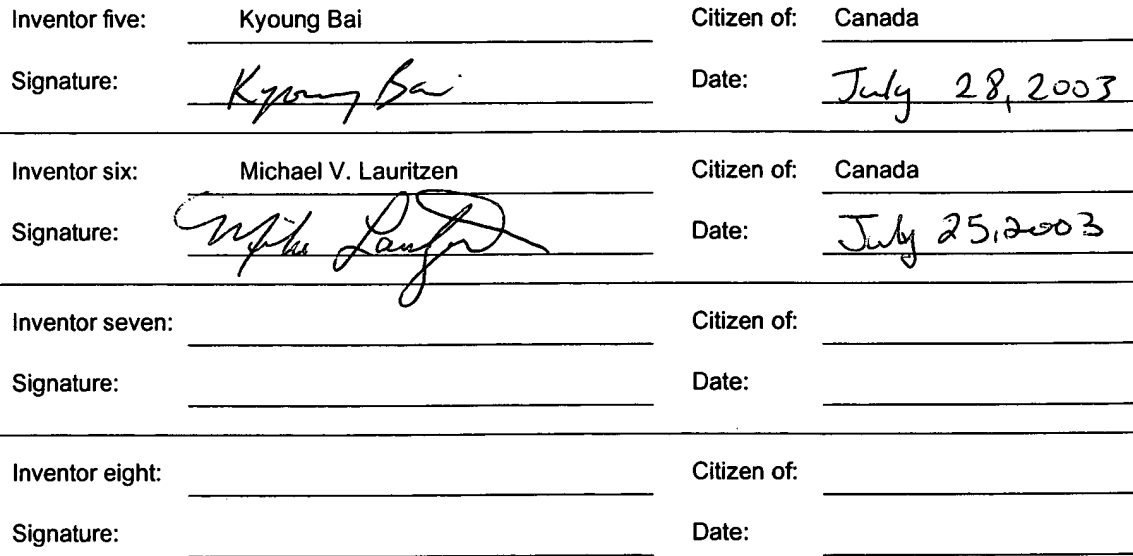 Inventor five: Kyoung Bai Citizen of: Canada
Signature: Kyoung Bai Date: July 28, 2003
Inventor six: Michael V. Lauritzen Citizen of: Canada
Signature: Mike Lauritzen Date: July 25, 2003
Inventor seven: Citizen of:
Signature: Date:
Inventor eight: Citizen of:
Signature: Date: